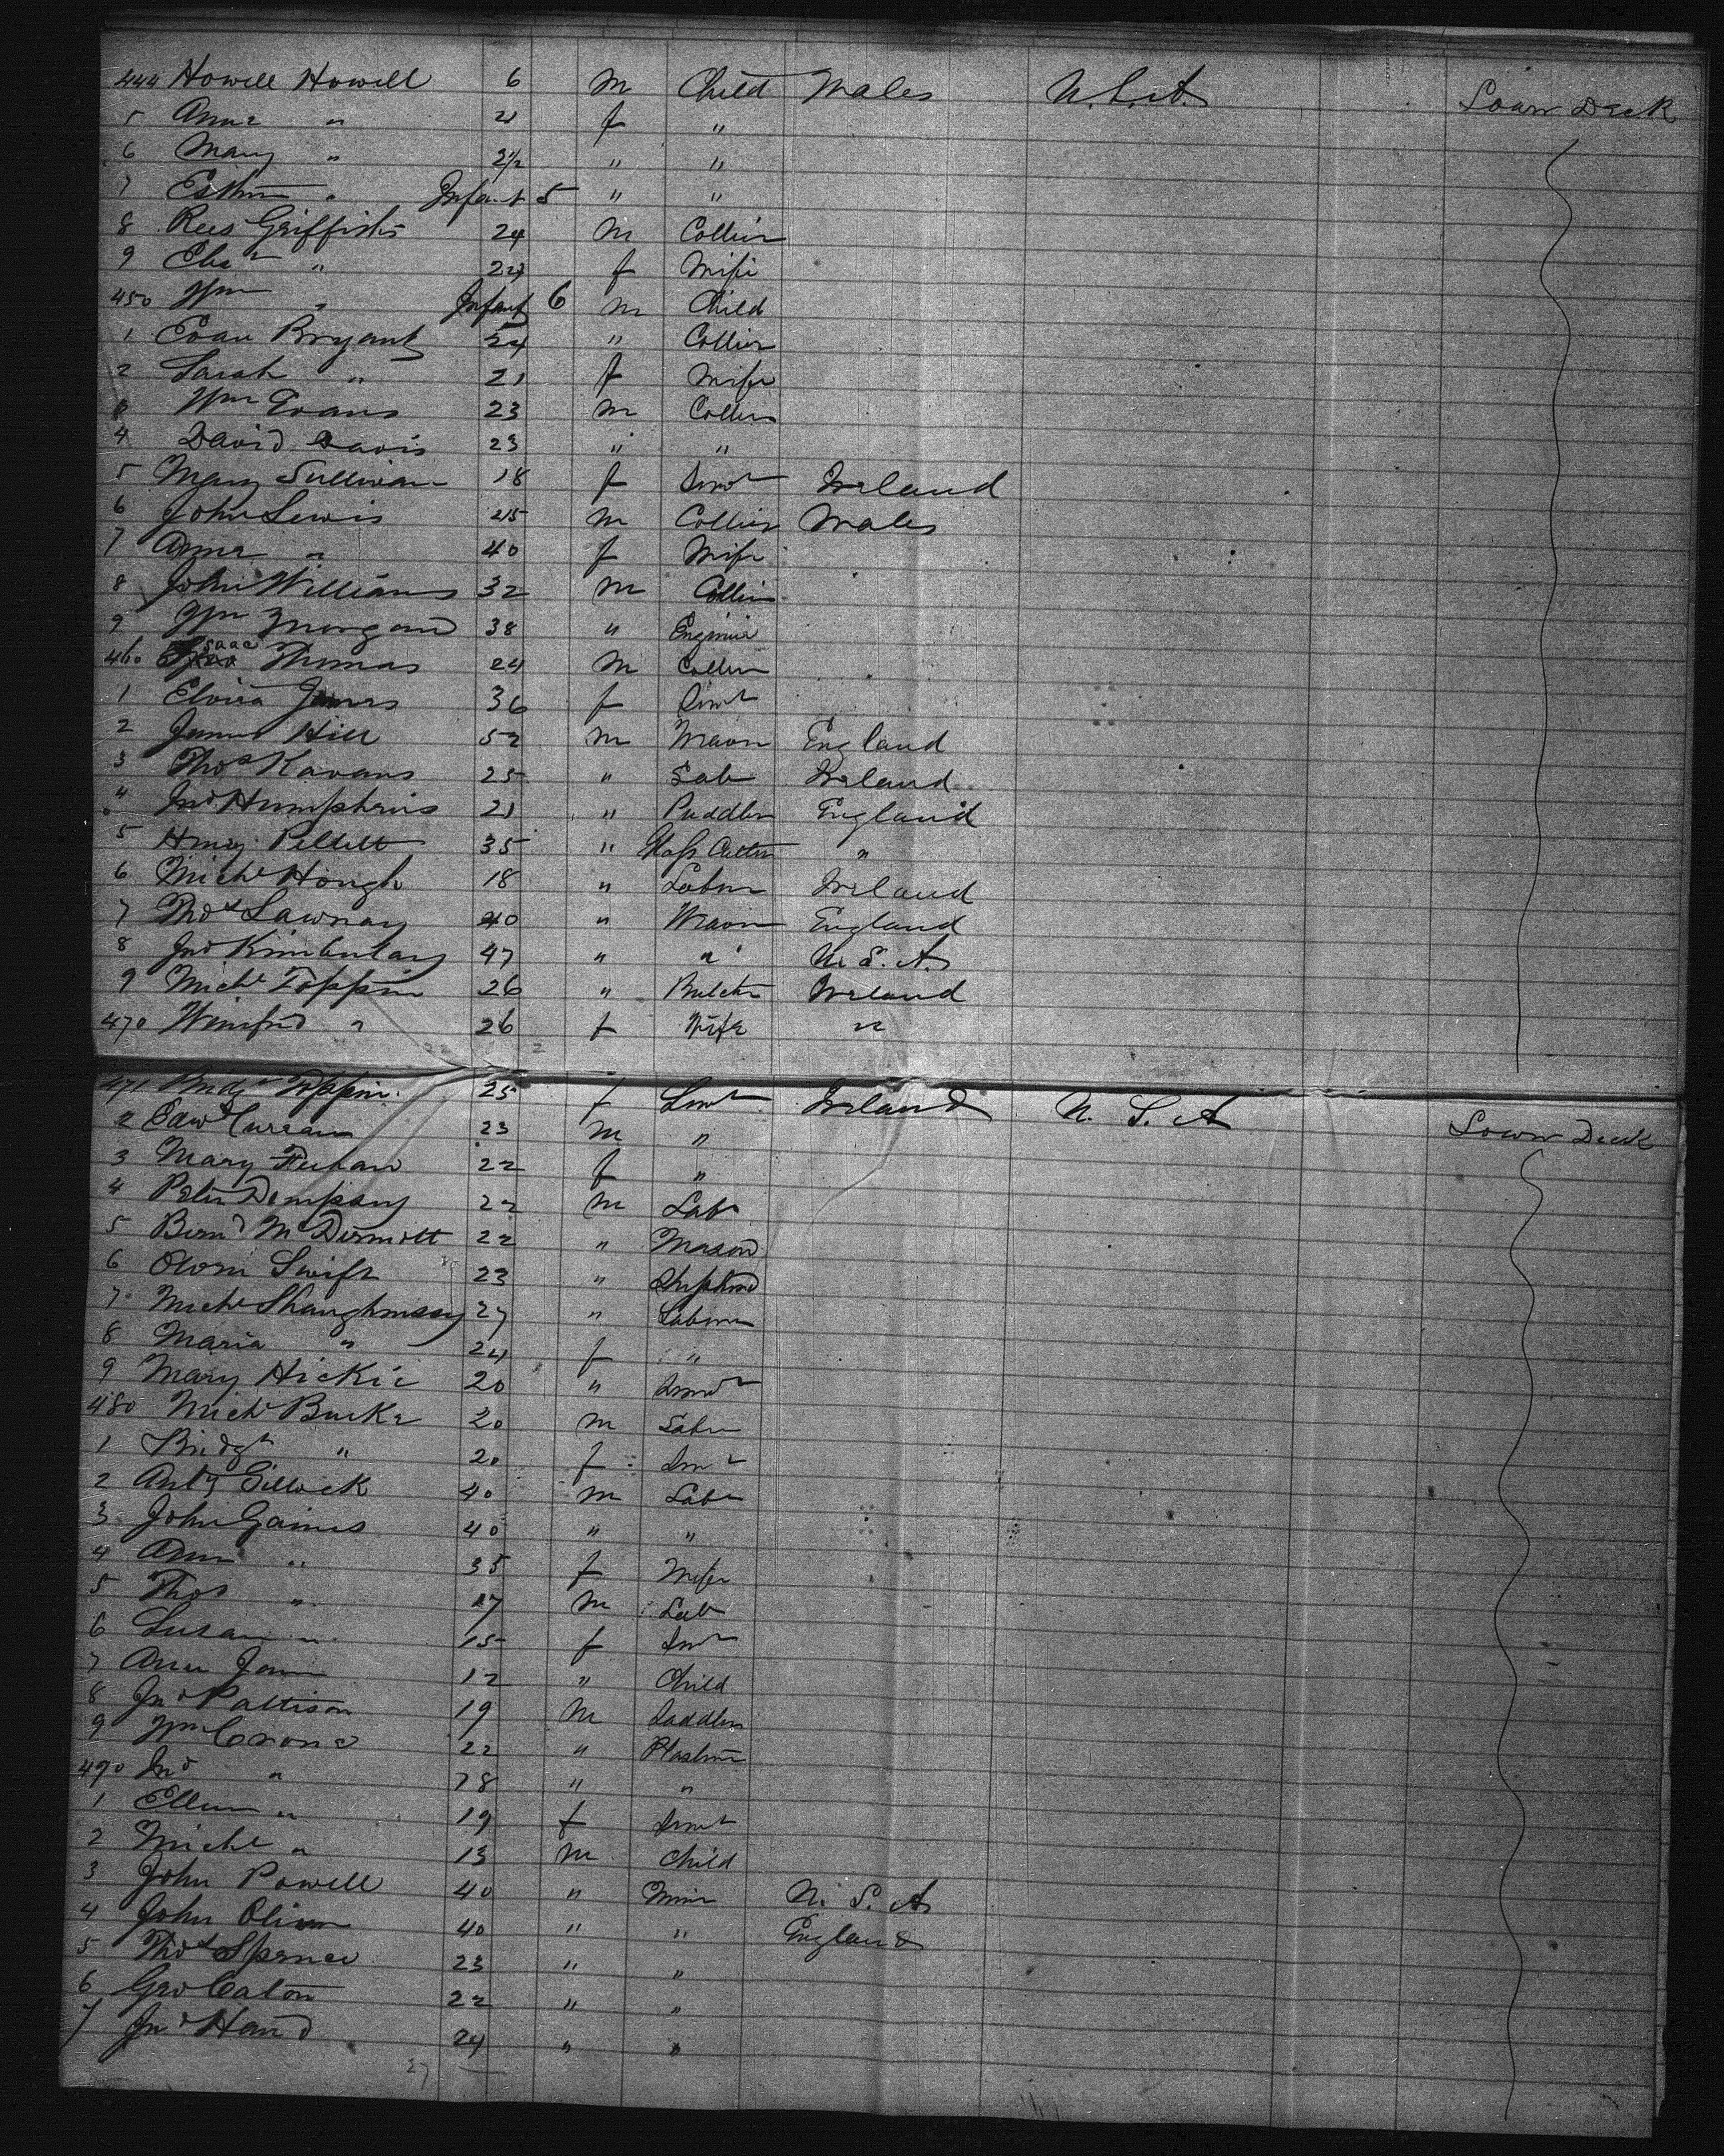 444 Howell Howell 6 m Child Wales U.S.A. Lower Deck
5 Anne " 4 f "
6 Mary " 2½ " "
7 Esther " Infant 5 " "
8 Rees Griffiths 24 m Collier
9 Elizth " 24 f Wife
450 Wm " Infant 6 m Child
1 Evan Bryant 24 " Collier
2 Sarah " 21 f Wife
3 Wm Evans 23 m Collier
4 David Davis 23 " "
5 Mary Sullivan 18 f Servt Ireland
6 John Lewis 45 m Collier Wales
7 Anne " 40 f Wife
8 John Williams 32 m Collier
9 Wm Morgan 38 " Engineer
460 Isaac Thomas 24 m Collier
1 Elvira 36 f Servt
2 James Hill 52 m Mason England
3 Thos Kavans 25 " Lab Ireland
4 Jno Humphries 21 " Puddler England
5 Henry Pellett 35 " Glass Cutter "
6 Michl Hough 18 " Labour Ireland
7 Thos Lawnay 40 " England
8 Jno 47 " " U.S.A.
9 Michl Toppin 26 " Butcher Ireland
470 Winifred " 26 f Wife "
471 Bridgt Toppin 25 f Servt Ireland U.S.A Lower Deck
2 Edwd Curran 23 m "
3 Mary 22 f "
4 Peter Dempsey 22 m Labr
5 Bernd McDermott 22 " Mason
6 Owen Swift 23 " Shepherd
7 Michl Shaughnessy 27 " Labourer
8 Maria " 24 f "
9 Mary Hickie 20 " Servt
480 Michl Burke 20 m Labr
1 Bridgt " 20 f Servt
2 Anty Gillick 40 m Labr
3 John Gaines 40 " "
4 Ann " 35 f Wife
5 Thos " 17 m Lab
6 Susan " 15 f Servt
7 Ann Jane 12 " Child
8 Jno Pattison 19 m Saddler
9 Wm Crone 22 " Plasterer
490 Jno " 78 " "
1 Ellen " 19 f Servt
2 Michl " 13 m Child
3 John Powell 40 " Miner U.S.A
4 John Oliver 40 " " England
5 Thos Spence 23 " "
6 Geo Caton 22 " "
7 Jno Hand 24 " "
27